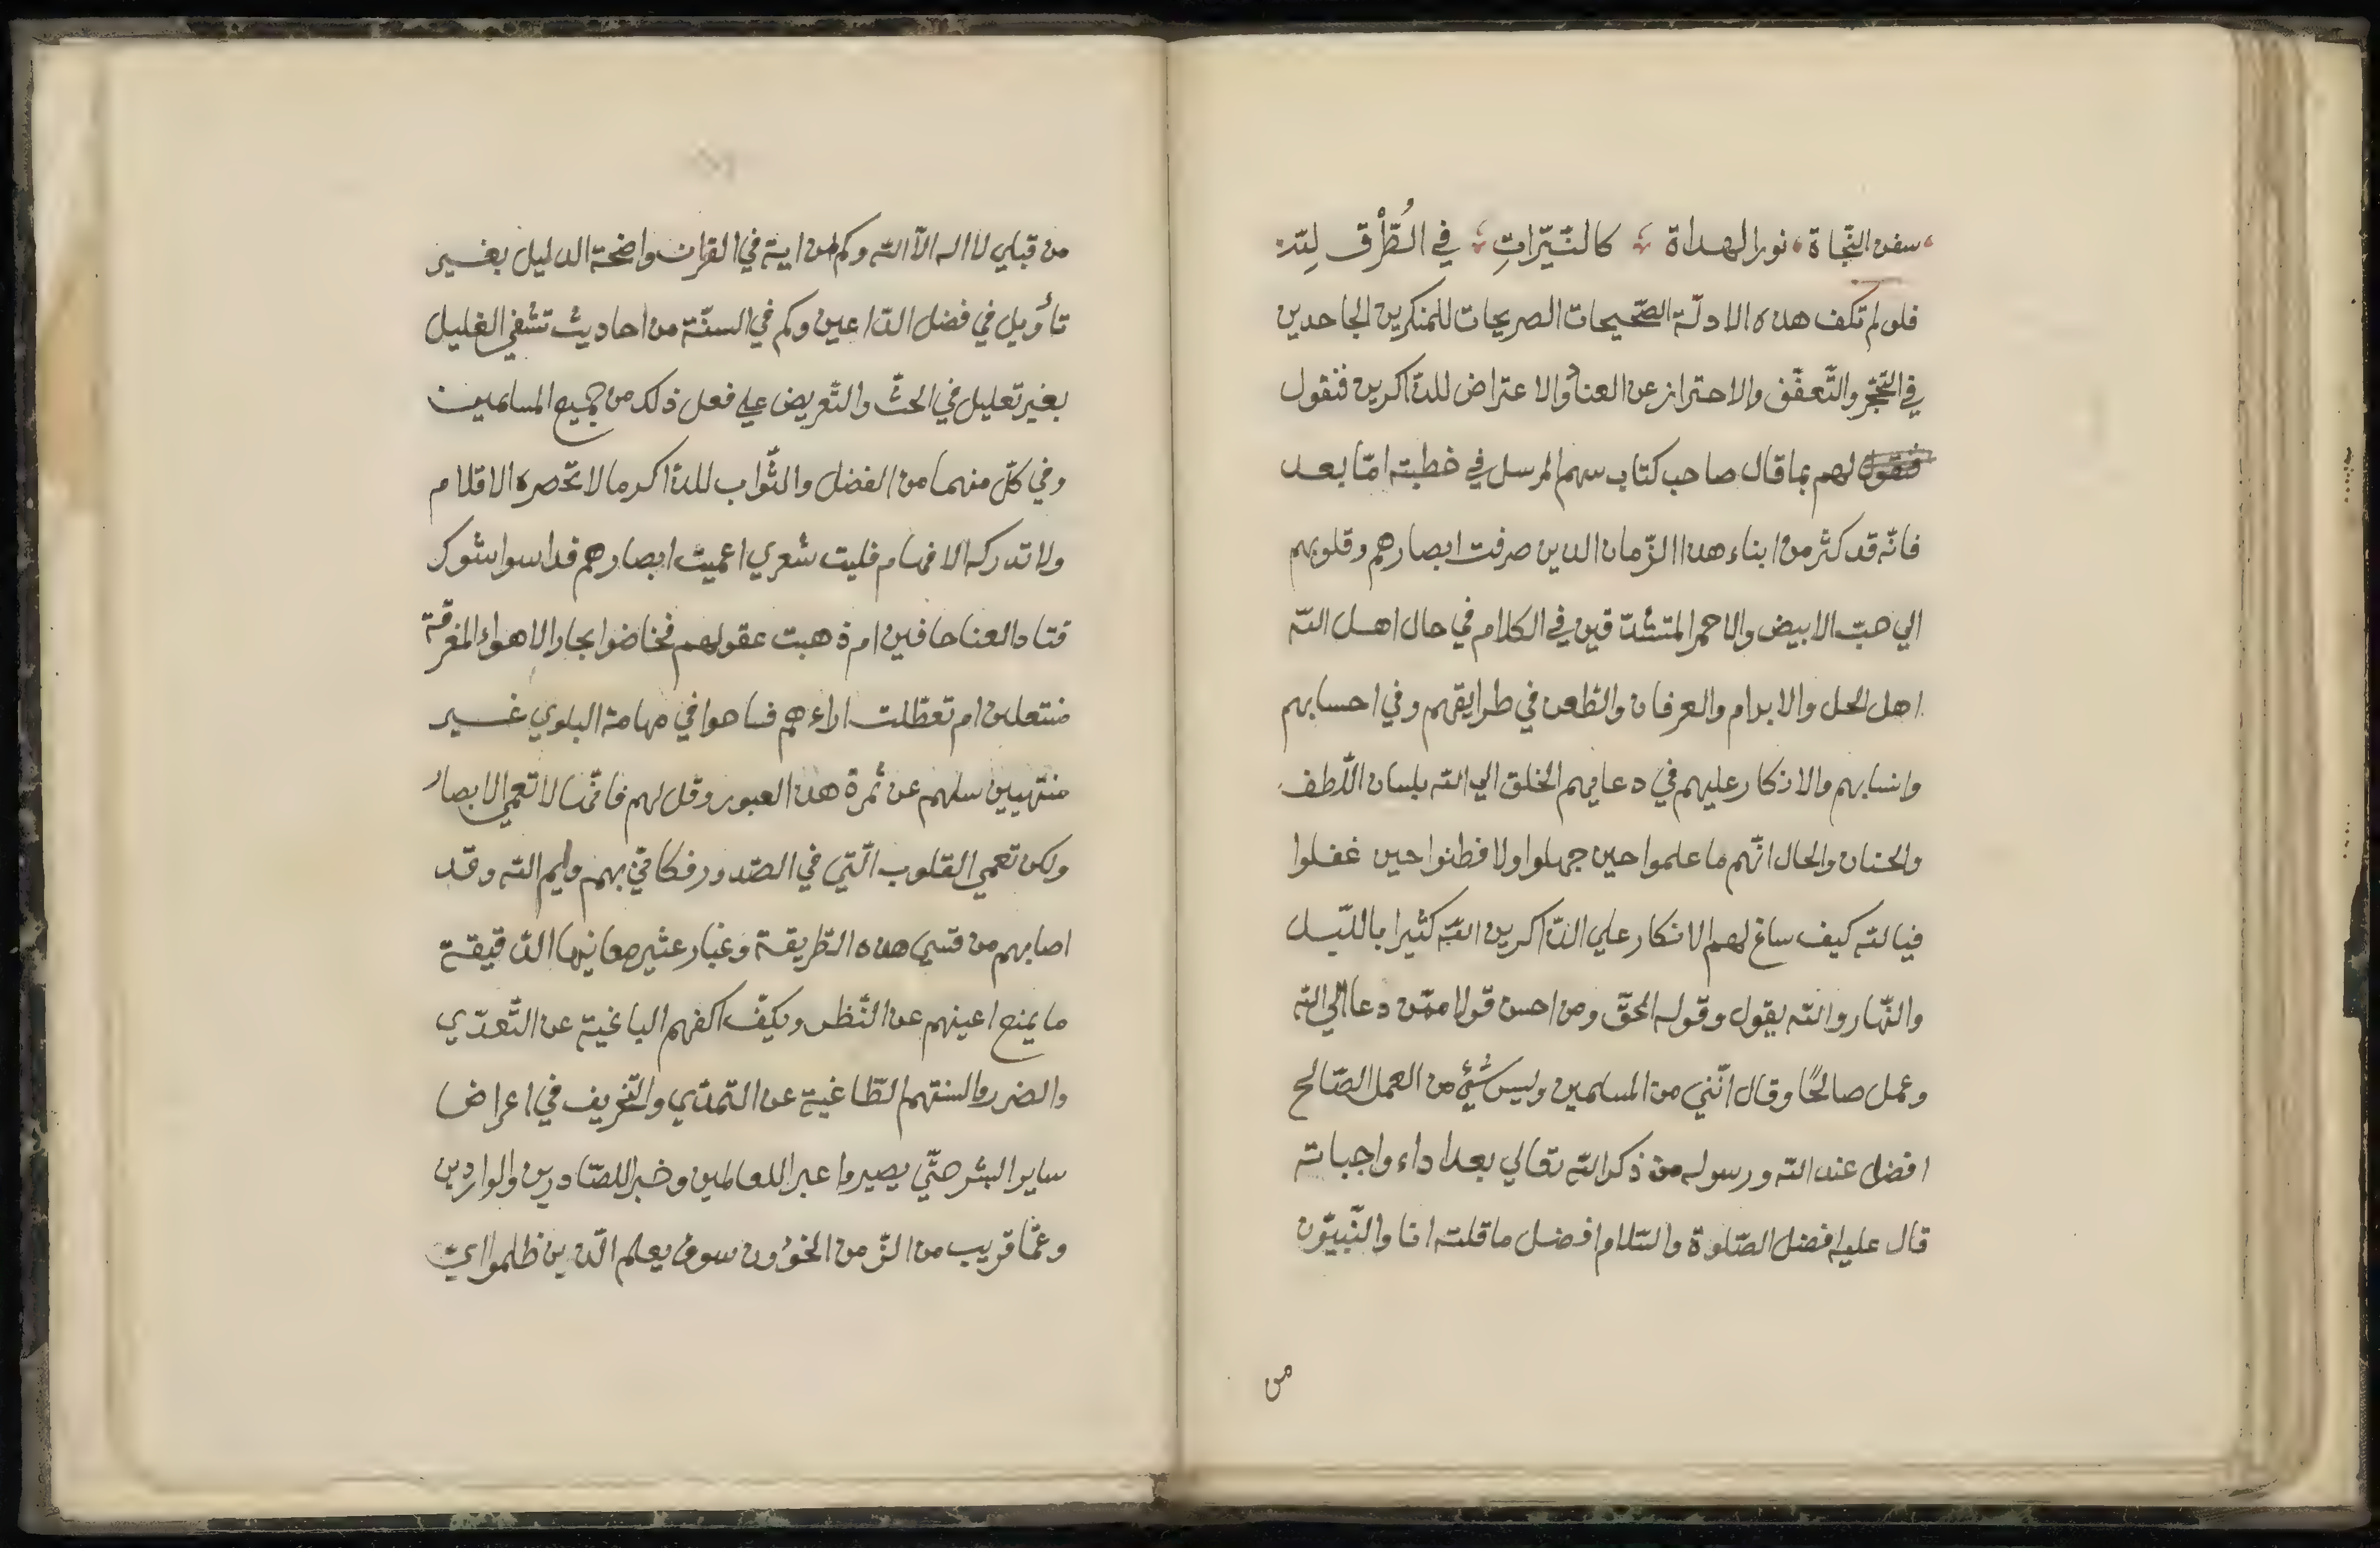 سفن النّجاة نور الهداة كالنّيّراتِ في الطُّرْق لِلّه
فلو لم تكف هذه الادلّة الصّحيحات الصريحات للمنكرين الجاحدين
في التّحجّر والتّعفّف والاحتراز عن العنا والاعتراض للذّاكرين فنقول
فنقول لهم بما قال صاحب كتاب سهم المرسل في خطبته امّا بعد
فانّه قد كثر من ابناء هذا الزّمان الذين صرفت ابصارهم وقلوبهم
الي حبّ الابيض والاحمر المتشدّقين في الكلام في حال اهل اللّه
اهل الحل والابرام والعرفان والطّعن في طرايقهم وفي احسابهم
وانسابهم والانكار عليهم في دعايهم الخلق الي اللّه بلسان اللّطف
والحنان والحال انّهم ما علموا حين جهلوا ولا فطنوا حين غفلوا
فيالله كيف ساغ لهم الانكار علي الذّاكرين اللّه كثيرا بالليّل
والنّهار واللّه يقول وقوله الحقّ ومن احسن قولا ممّن دعا الي اللّه
وعمل صالحًا وقال انّني من المسلمين وليس شُيئ من العمل الصّالح
افضل عند اللّه ورسوله من ذكر اللّه تعالي بعد اداء واجباته
قال عليه افضل الصّلوة والسّلام افضل ما قلته انا والنّبيّون
من
من قبلي لا اله الّا اللّه وكم من اية في القران واضحة الدليل بغير
تأويل في فضل الذّاعين وكم في السنّة من احاديث تشفي الغليل
بغير تعليل في الحثّ والتّعريض علي فعل ذلك من جميع المسلمين
وفي كلّ منهما من الفضل والثّواب للذّاكر ما لا تحّصره الاقلام
ولا تدركه الافهام فليت شعري اعميت ابصارهم فداسوا شوك
قتاد العنا حافين ام ذهبت عقولهم فخاضوا بحار الاهواء المغرقّة
منتعلين ام تعطّلت اراءهم فساحوا في مهامة البلوي غير
منتهيين سلهم عن ثمرة هذا العبور وقل لهم فانّها لا تعمي الابصار
ولكن تعمي القلوب الّتي في الصّدور فكانّي بهم وايم اللّه وقد
اصابهم من قسي هذه الطّريقة وغبار عثير معانيها الدّقيقة
ما يمنع اعينهم عن النّظر ويكفّ اكفهم الباغية عن التّعدّي
والضرر والسنتهم الطّاغية عن التّمدّي والتّخريف في اعراض
ساير البشر حتّي يصيروا عبرا للعالمين وخبرا للصّادرين والواردين
وعمّا قريب من الزّمن الخؤون سوف يعلم الّذين ظلموا ايّ